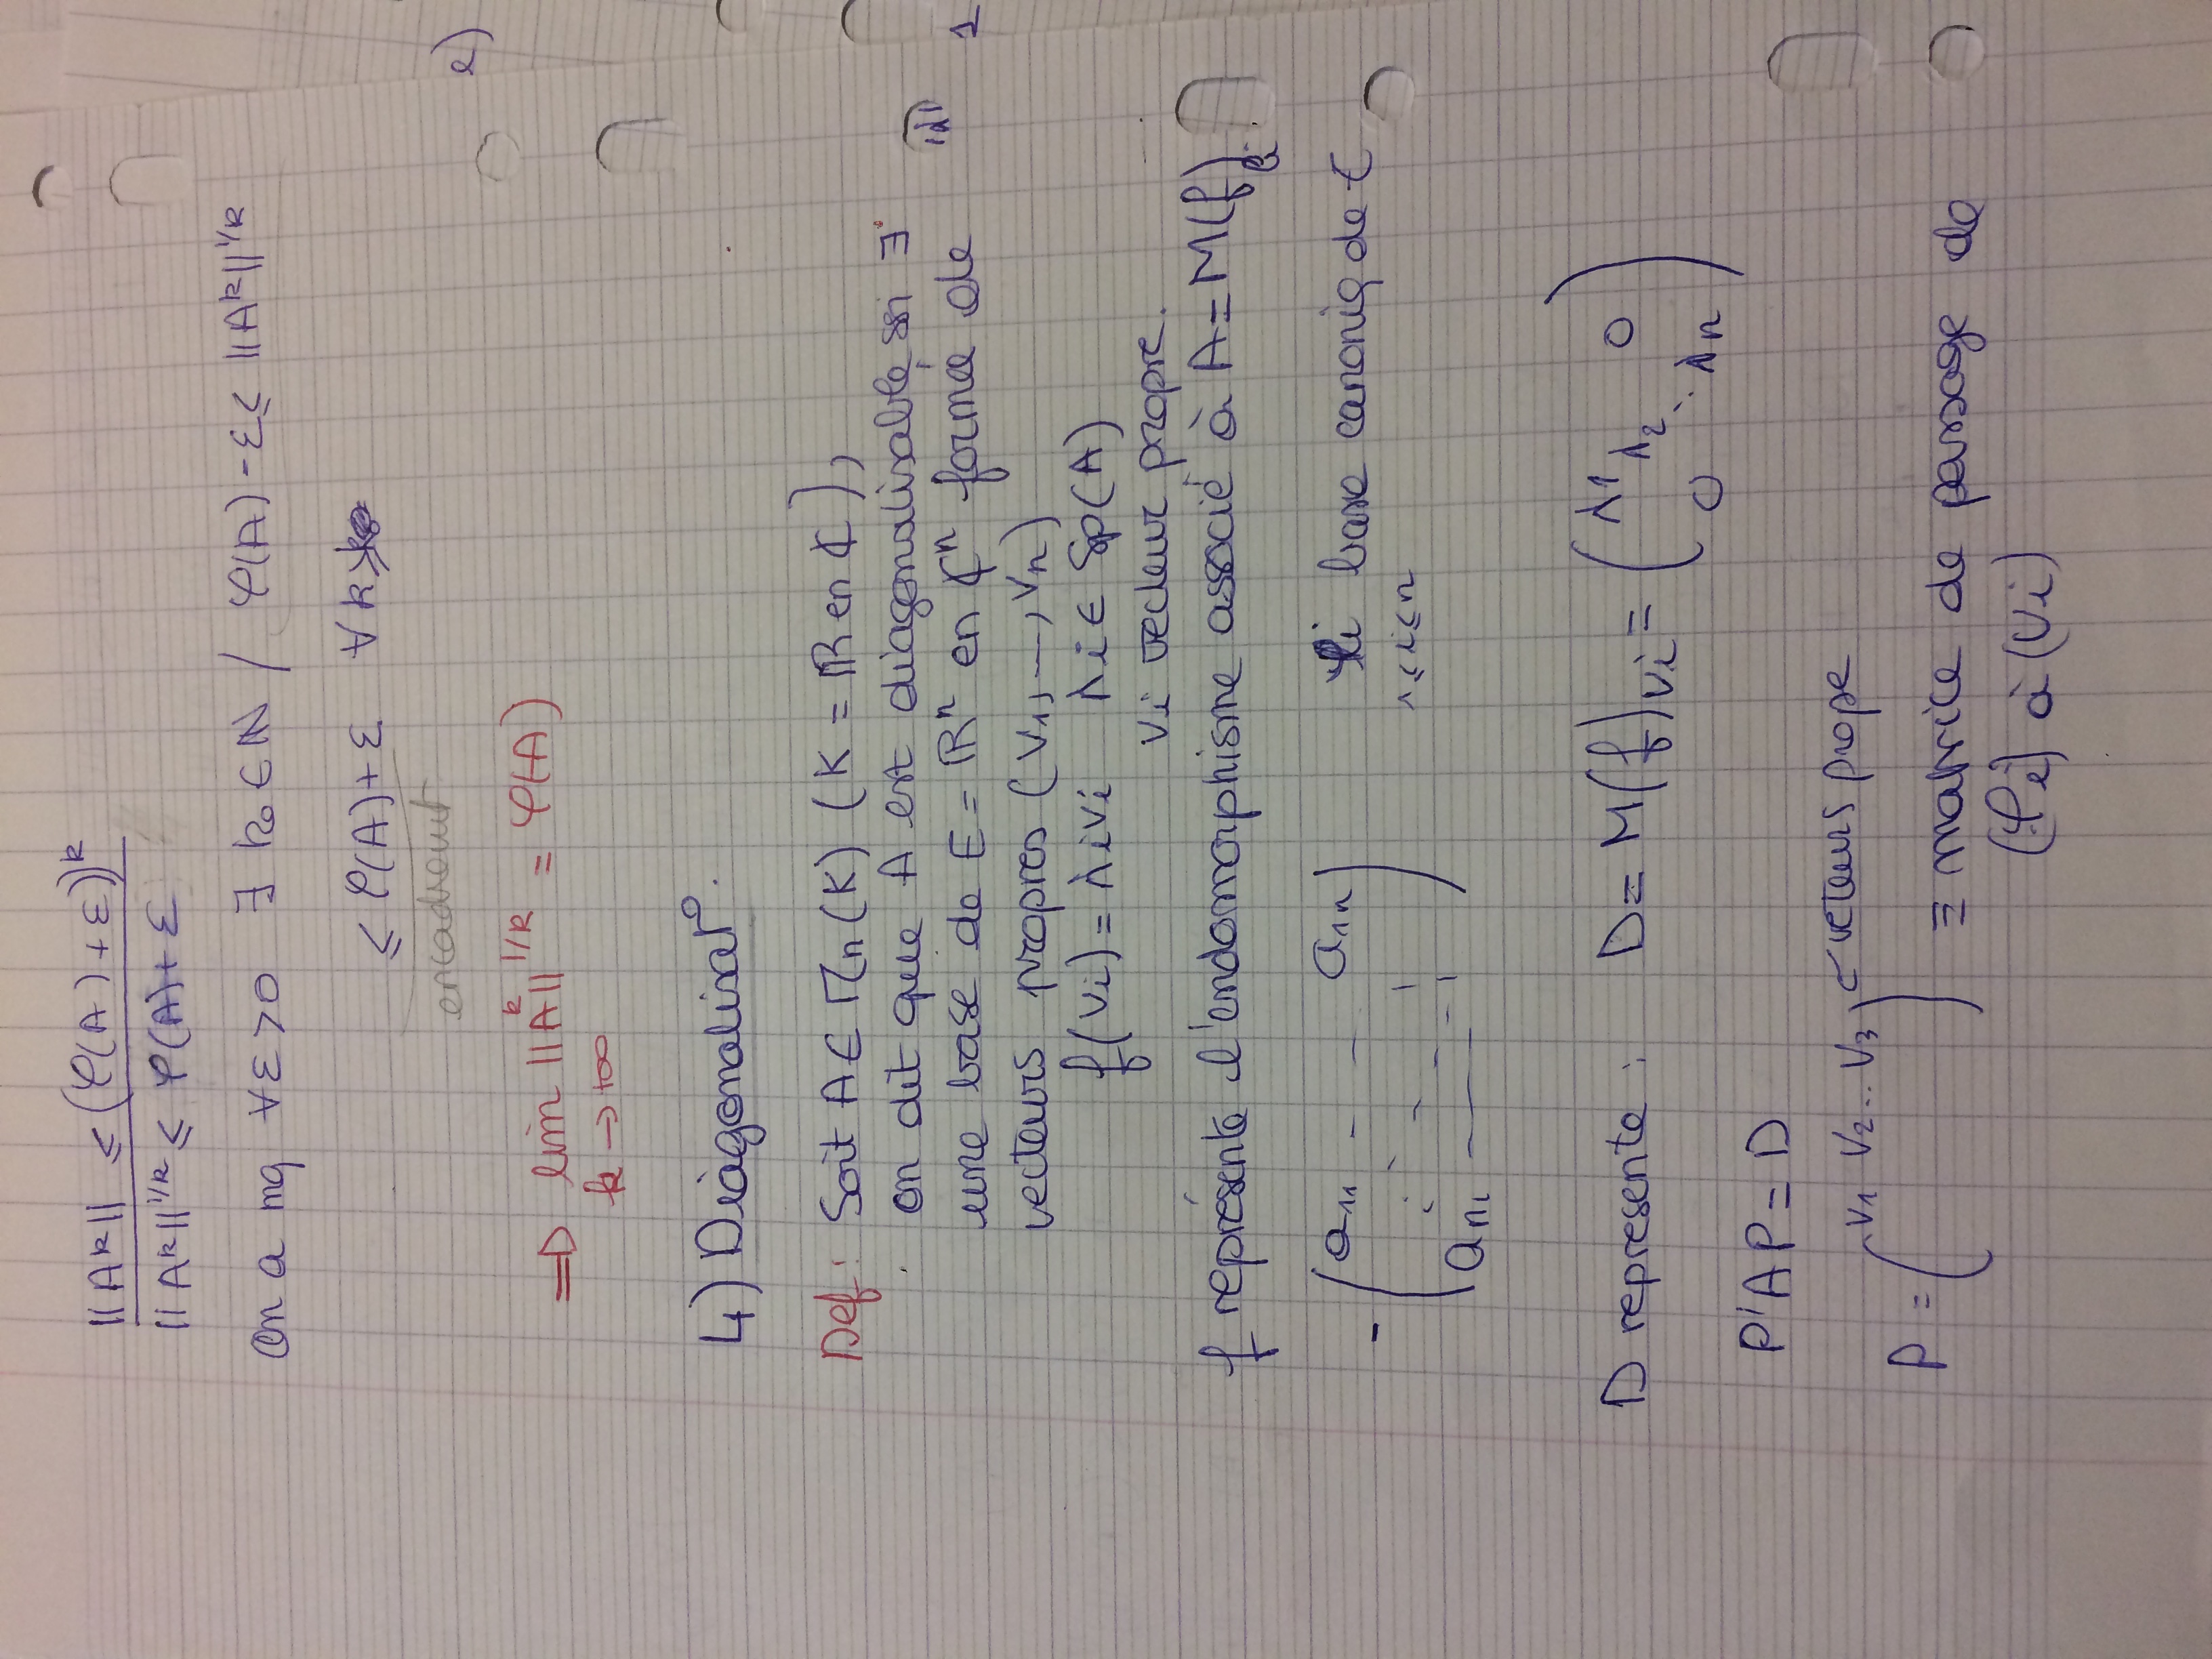 ||A^k|| ≤ (φ(A) + ε)^k
||A^k||^{1/k} ≤ φ(A) + ε
On a mq ∀ε>0 ∃ k₀ ∈ ℕ / φ(A) - ε ≤ ||A^k||^{1/k}
≤ φ(A) + ε ∀ k ≥ k₀
encadremt
⇒ lim ||A^k||^{1/k} = φ(A)
k → +∞
4) Diagonalisat°.
Def : Soit A ∈ Mn(K) (K = ℝ en ℂ),
on dit que A est diagonalisable ssi ∃
une base de E = ℝ^n en ℂ^n formée de
vecteurs propres (V1, ..., Vn)
f(Vi) = λiVi λi ∈ Sp(A)
Vi vecteur propre.
f représente l'endomorphisme associé à A = M(f)
- ( a11 - - a1n
an1 ——— )
base canoniq de E
1≤i≤n
D represente : D = M(f)Vi = ( λ1 λ2 0
0 ⋱ λn )
P'AP = D
P = ( V1 V2 .. V3 ) ← veteurs prope
≡ matrice de passage de
(φi) à (Vi)
e)
1